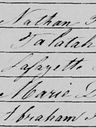 Nathan
Talatah
Lafayette
Marie
Abraham